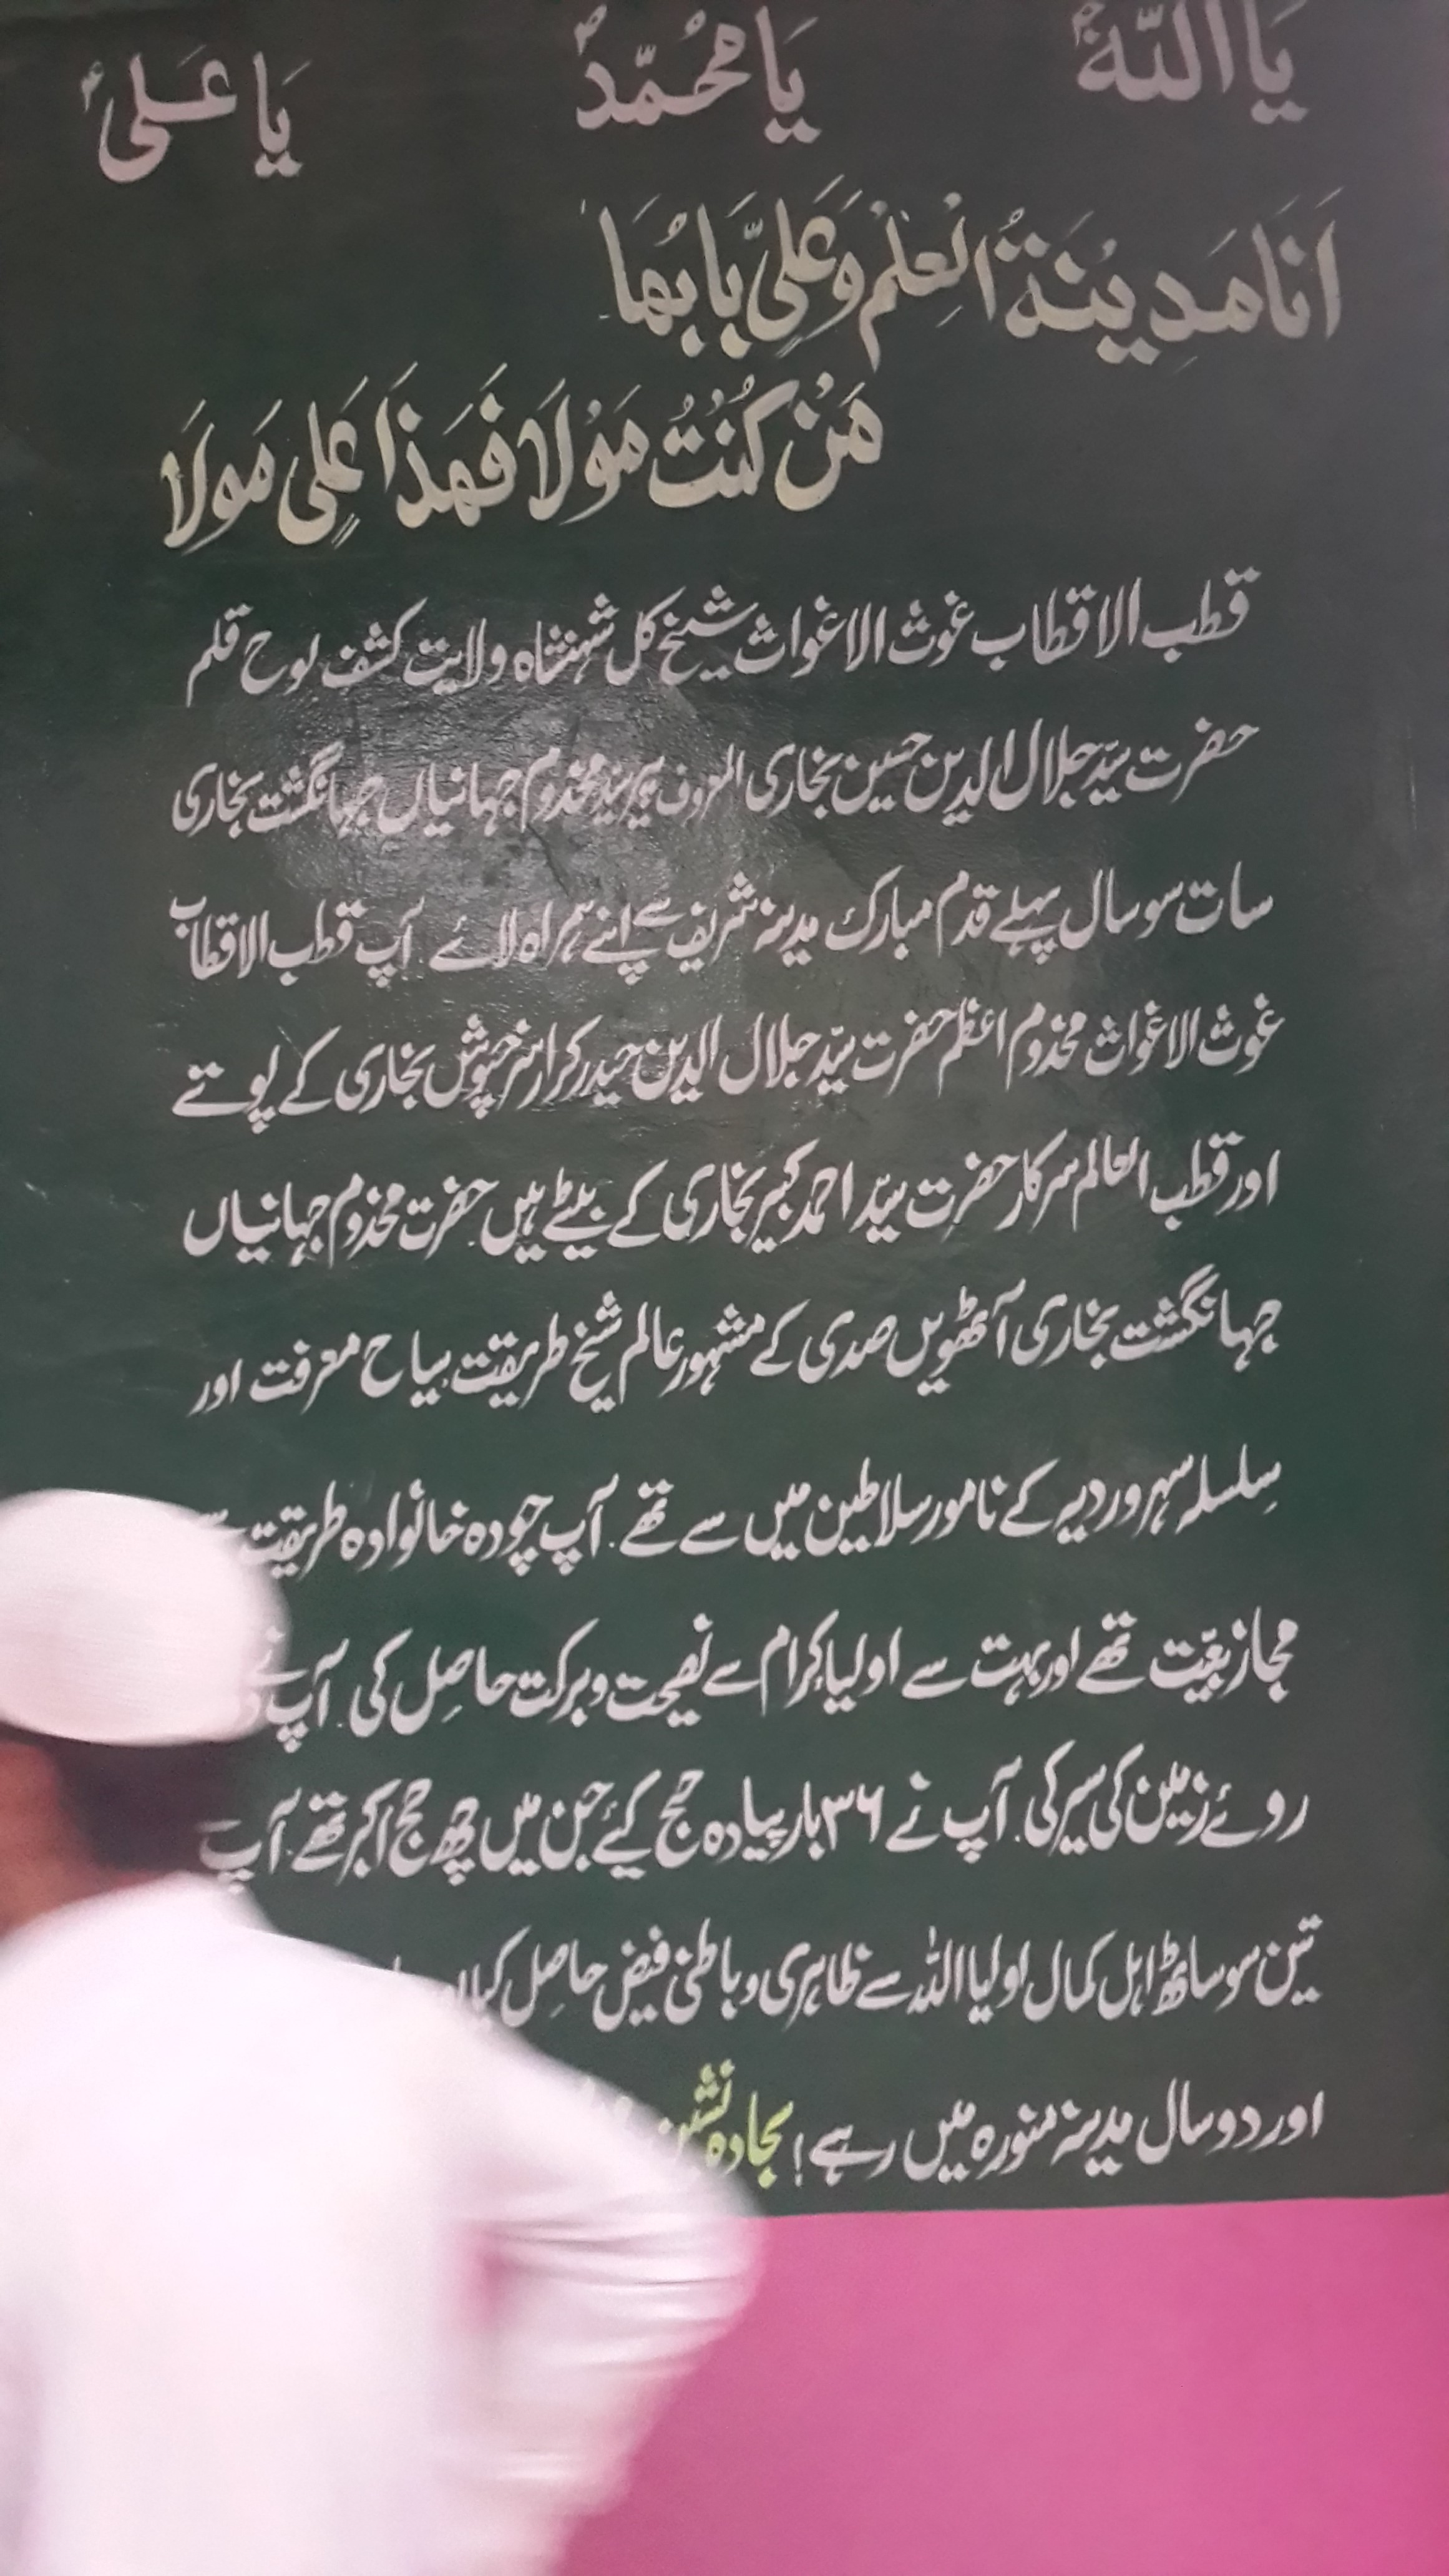 یَا اللّٰہ یَا مُحَمّدؐ یَا عَلی
اَنَا مَدِیْنَۃُ الْعِلْمِ وَ عَلِیٌّ بَابُھَا
مَنْ کُنْتُ مَوْلَا فَھَذَا عَلِی مَولَا
قطب الاقطاب غوث الاغواث شیخ کل شہنشاہ ولایت کشف لوح قلم
حضرت سیّد جلال الدین حسین بخاری المعروف پیر سید مخدوم جہانیاں جہانگشت بخاری
سات سو سال پہلے قدم مبارک مدینہ شریف سے اپنے ہمراہ لائے آپ قطب الاقطاب
غوث الاغواث مخدوم اعظم حضرت سیّد جلال الدین حیدر کرار سرخپوش بخاری کے پوتے
اور قطب العالم سرکار حضرت سیّد احمد کبیر بخاری کے بیٹے ہیں حضرت مخدوم جہانیاں
جہانگشت بخاری آٹھویں صدی کے مشہور عالم شیخ طریقت سیاح معرفت اور
سِلسلہ سہروردیہ کے نامور سلاطین میں سے تھے۔ آپ چودہ خانوادہ طریقت
مجاز بیّت تھے اور بہت سے اولیا کرام سے نصیحت و برکت حاصِل کی۔ آپ نے
روئے زمین کی سیر کی۔ آپ نے ۳۶ بار پیادہ حج کیۓ جن میں چھ حج اکبر تھے۔ آپ
تین سو ساٹھ اہل کمال اولیا اللہ سے ظاہری و باطنی فیض حاصِل کیا
اور دو سال مدینہ منورہ میں رہے! سجادہ نشین